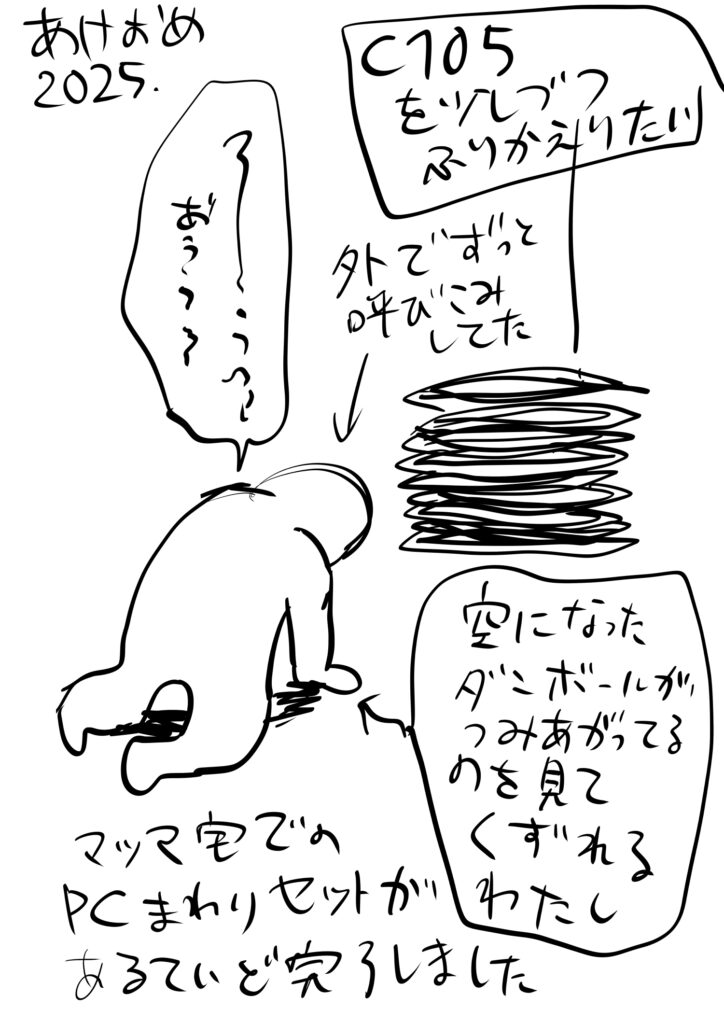 あけおめ
2025.
C105
を少しづつ
ふりかえりたい
外でずっと
呼びこみ
してた
空になった
ダンボールが
つみあがってる
のを見て
くずれる
わたし
マッマ宅での
PCまわりセットが
あるていど完了しました